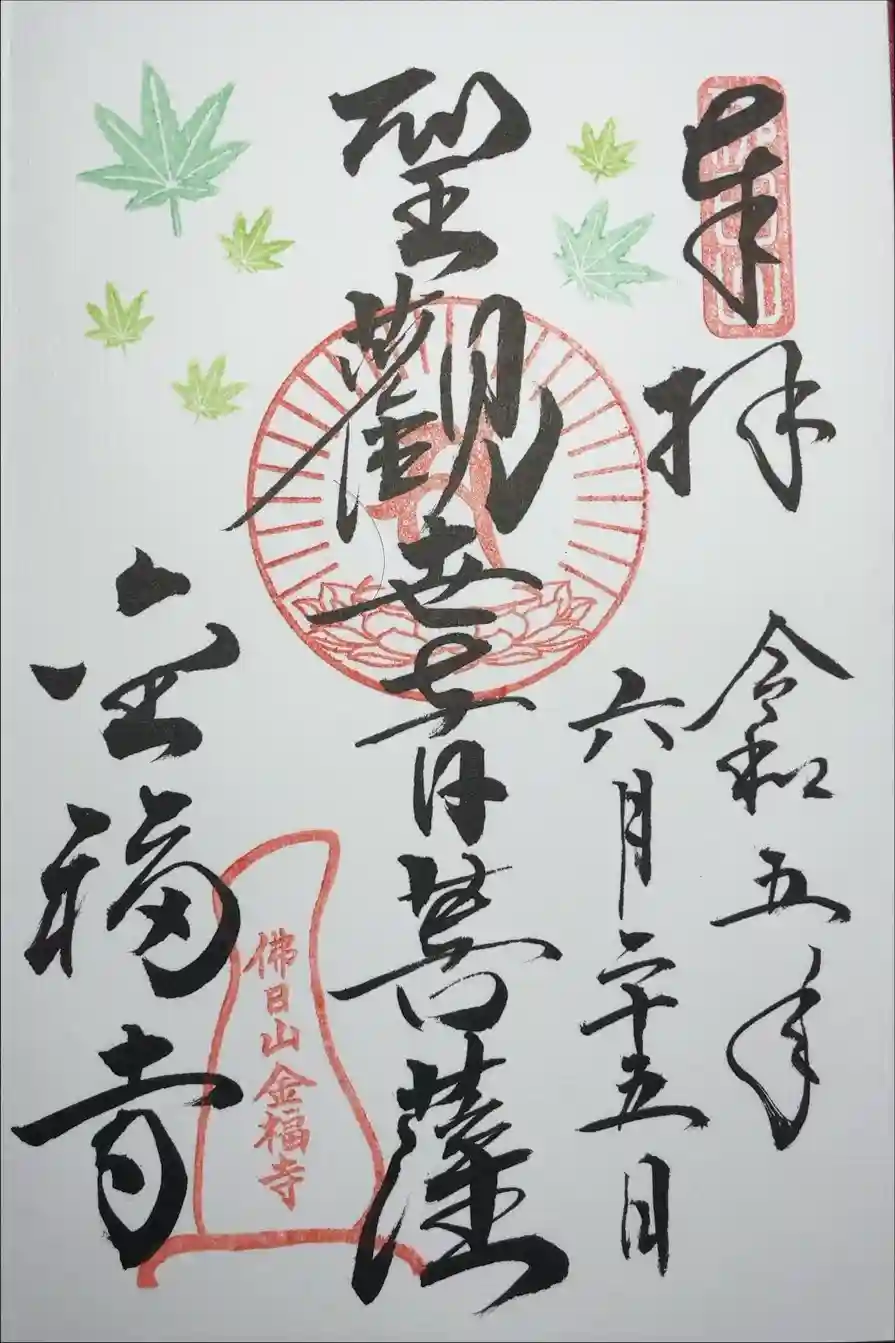 奉拝
令和五年
六月二十五日
聖觀世音菩薩
金福寺
佛日山金福寺
佛日山